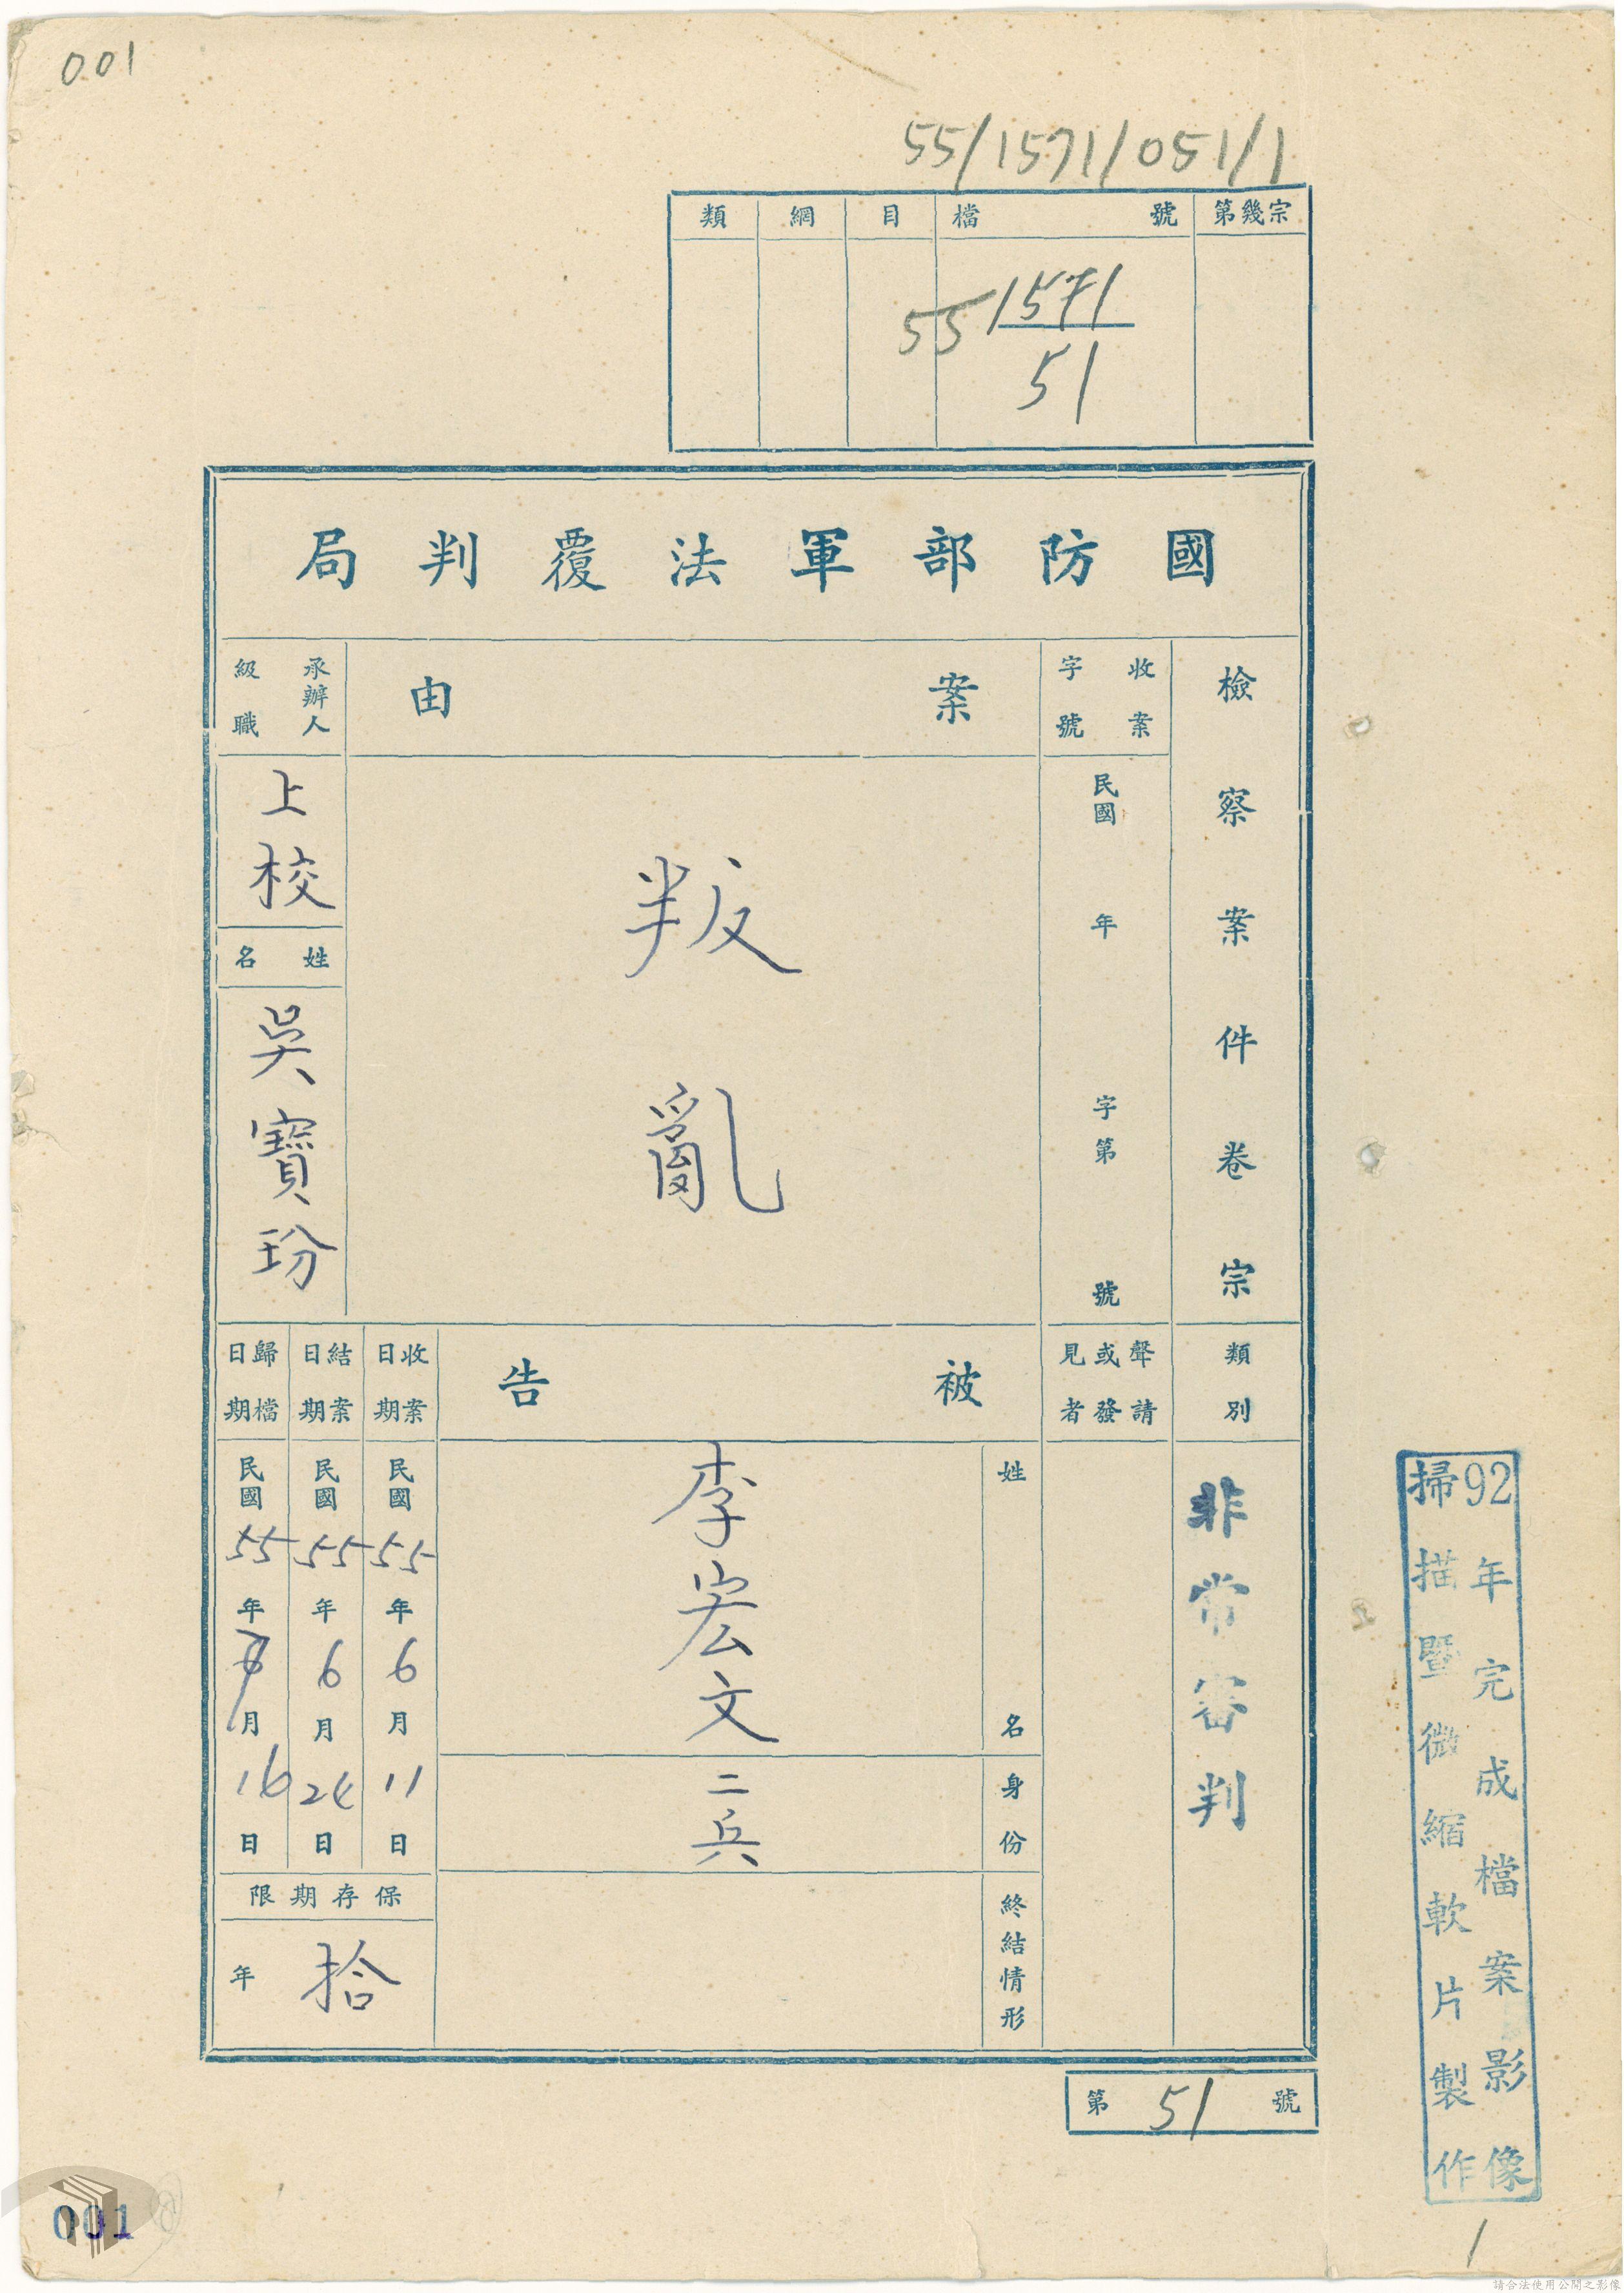 001
55/1571/051/1
類 綱 目 檔號 第幾宗
55 1571
51
國防部軍法覆判局
檢察案件卷宗
收案字號
民國 年 字第 號
案由
叛亂
承辦人級職
上校
姓名
吳寶玢
類別
非常審判
聲請或發見者
被告
姓名
李宏文
身份
二兵
終結情形
收案日期
民國55年6月11日
結案日期
民國55年6月24日
歸檔日期
民國55年7月16日
保存期限
拾年
第51號
92年完成檔案影像
掃描暨微縮軟片製作
1
001
請合法使用公開之影像